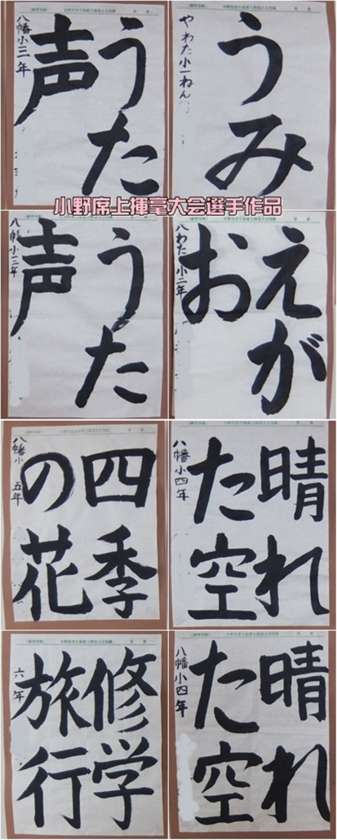 うみ
やわた小一ねん
うた
声
八幡小三年
小野席上揮毫大会選手作品
えが
お
八わた小二年
うた
声
八幡小三年
晴れ
た空
八幡小四年
四季
の花
八幡小 五年
晴れ
た空
八幡小四年
修学
旅行
六年